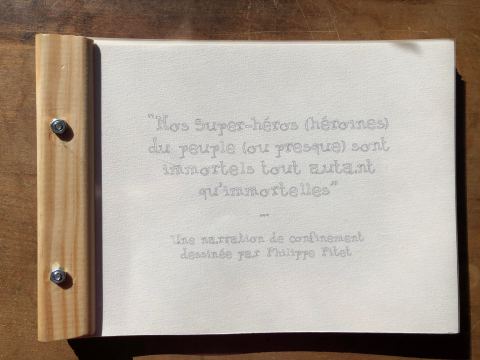 "Nos Super-héros (héroïnes)
du peuple (ou presque) sont
immortels tout autant
qu'immortelles"
---
Une narration de confinement
dessinée par Philippe Pitet